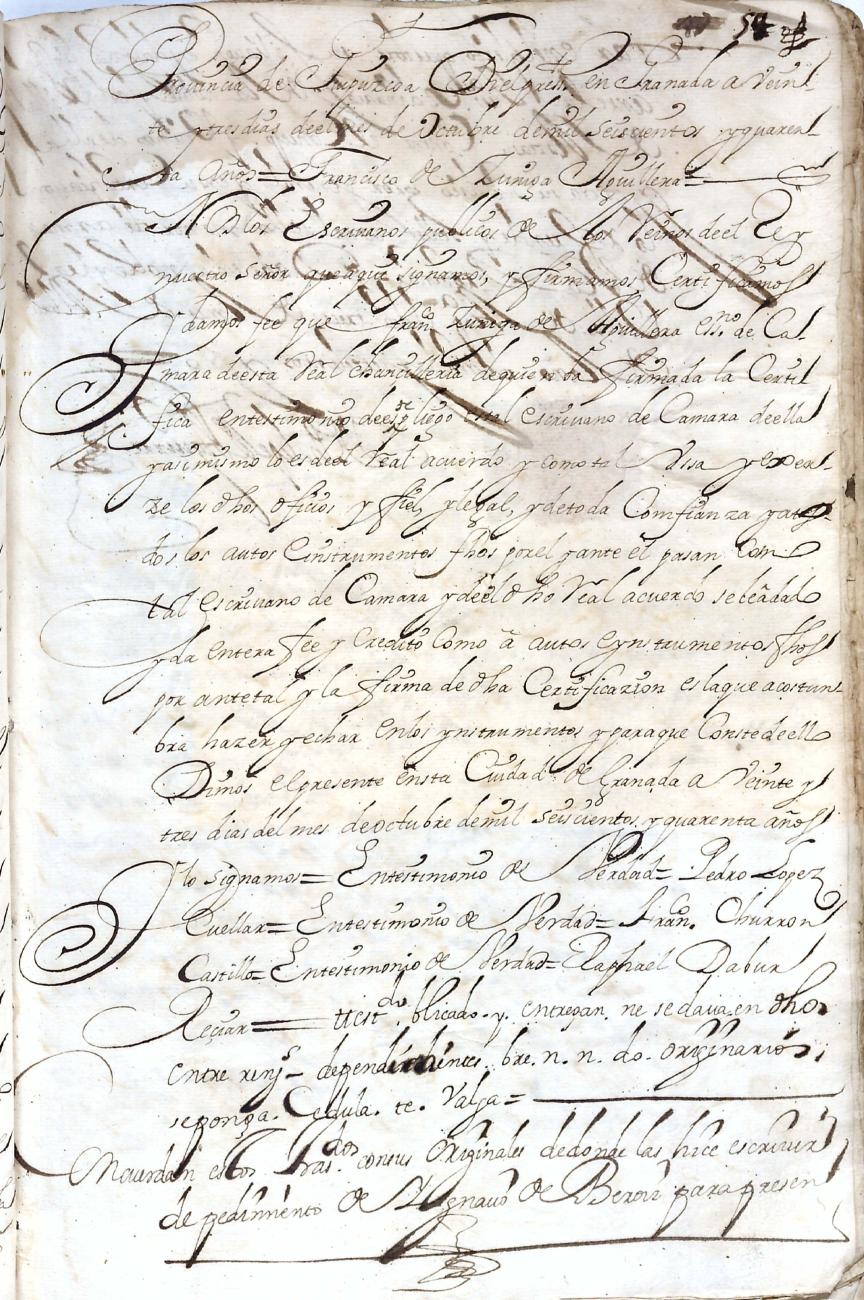 54
Provincia de Guipuzcoa Di el press.te en Granada a Vein
te y tres dias deel mes de Octubre de mil Seiscientos y quaren
ta años = Francisco de Zuniga Aguillera =
Nos los Escrivanos publicos de los Reinos deel Rey
nuestro Señor que aqui signamos, y firmamos Certificamos
y damos fee que fran.co Zuniga de Aguillera ess.no de Ca
mara de esta Real chancilleria de quien ba firmada la Certi
fica en testimonio de este pliego es tal escrivano de Camara de ella
y asimismo lo es deel Real acuerdo y como tal Ussa y exer
ze los dhos oficios y fiel, y legal, y de toda Comfianza y a to
dos los autos e instrumentos fhos por el y ante el pasan Com
tal escrivano de Camara y deel dho Real acuerdo se le a dado
y da entera fee y Credito como â autos e ynstrumentos fhos
por ante tal y la firma de dha Certificazion es la que acostum
bra hazer y echar en los ynstrumentos y para que Conste de ello
Dimos el presente en sta Ciudad de Granada a Veinte y
tres dias del mes de octubre de mil seiscientos y quarenta años
y lo signamos = En testimonio de Verdad = Pedro Lopez
Cuellar = En testimonio de Verdad = fran.co Churron
Castillo = En testimonio de Verdad = Raphael Dabur
Reciar = do. blicado. y. entregan. ne se dava en dho
entre renj.s dependientes. bre. n. n. do. originario
se ponga. Cedula. te. Valga =
Concuerdan estos tras.dos con sus originales de donde las hice escrivir
de pedimiento de Ygnacio de Beroiz para presen